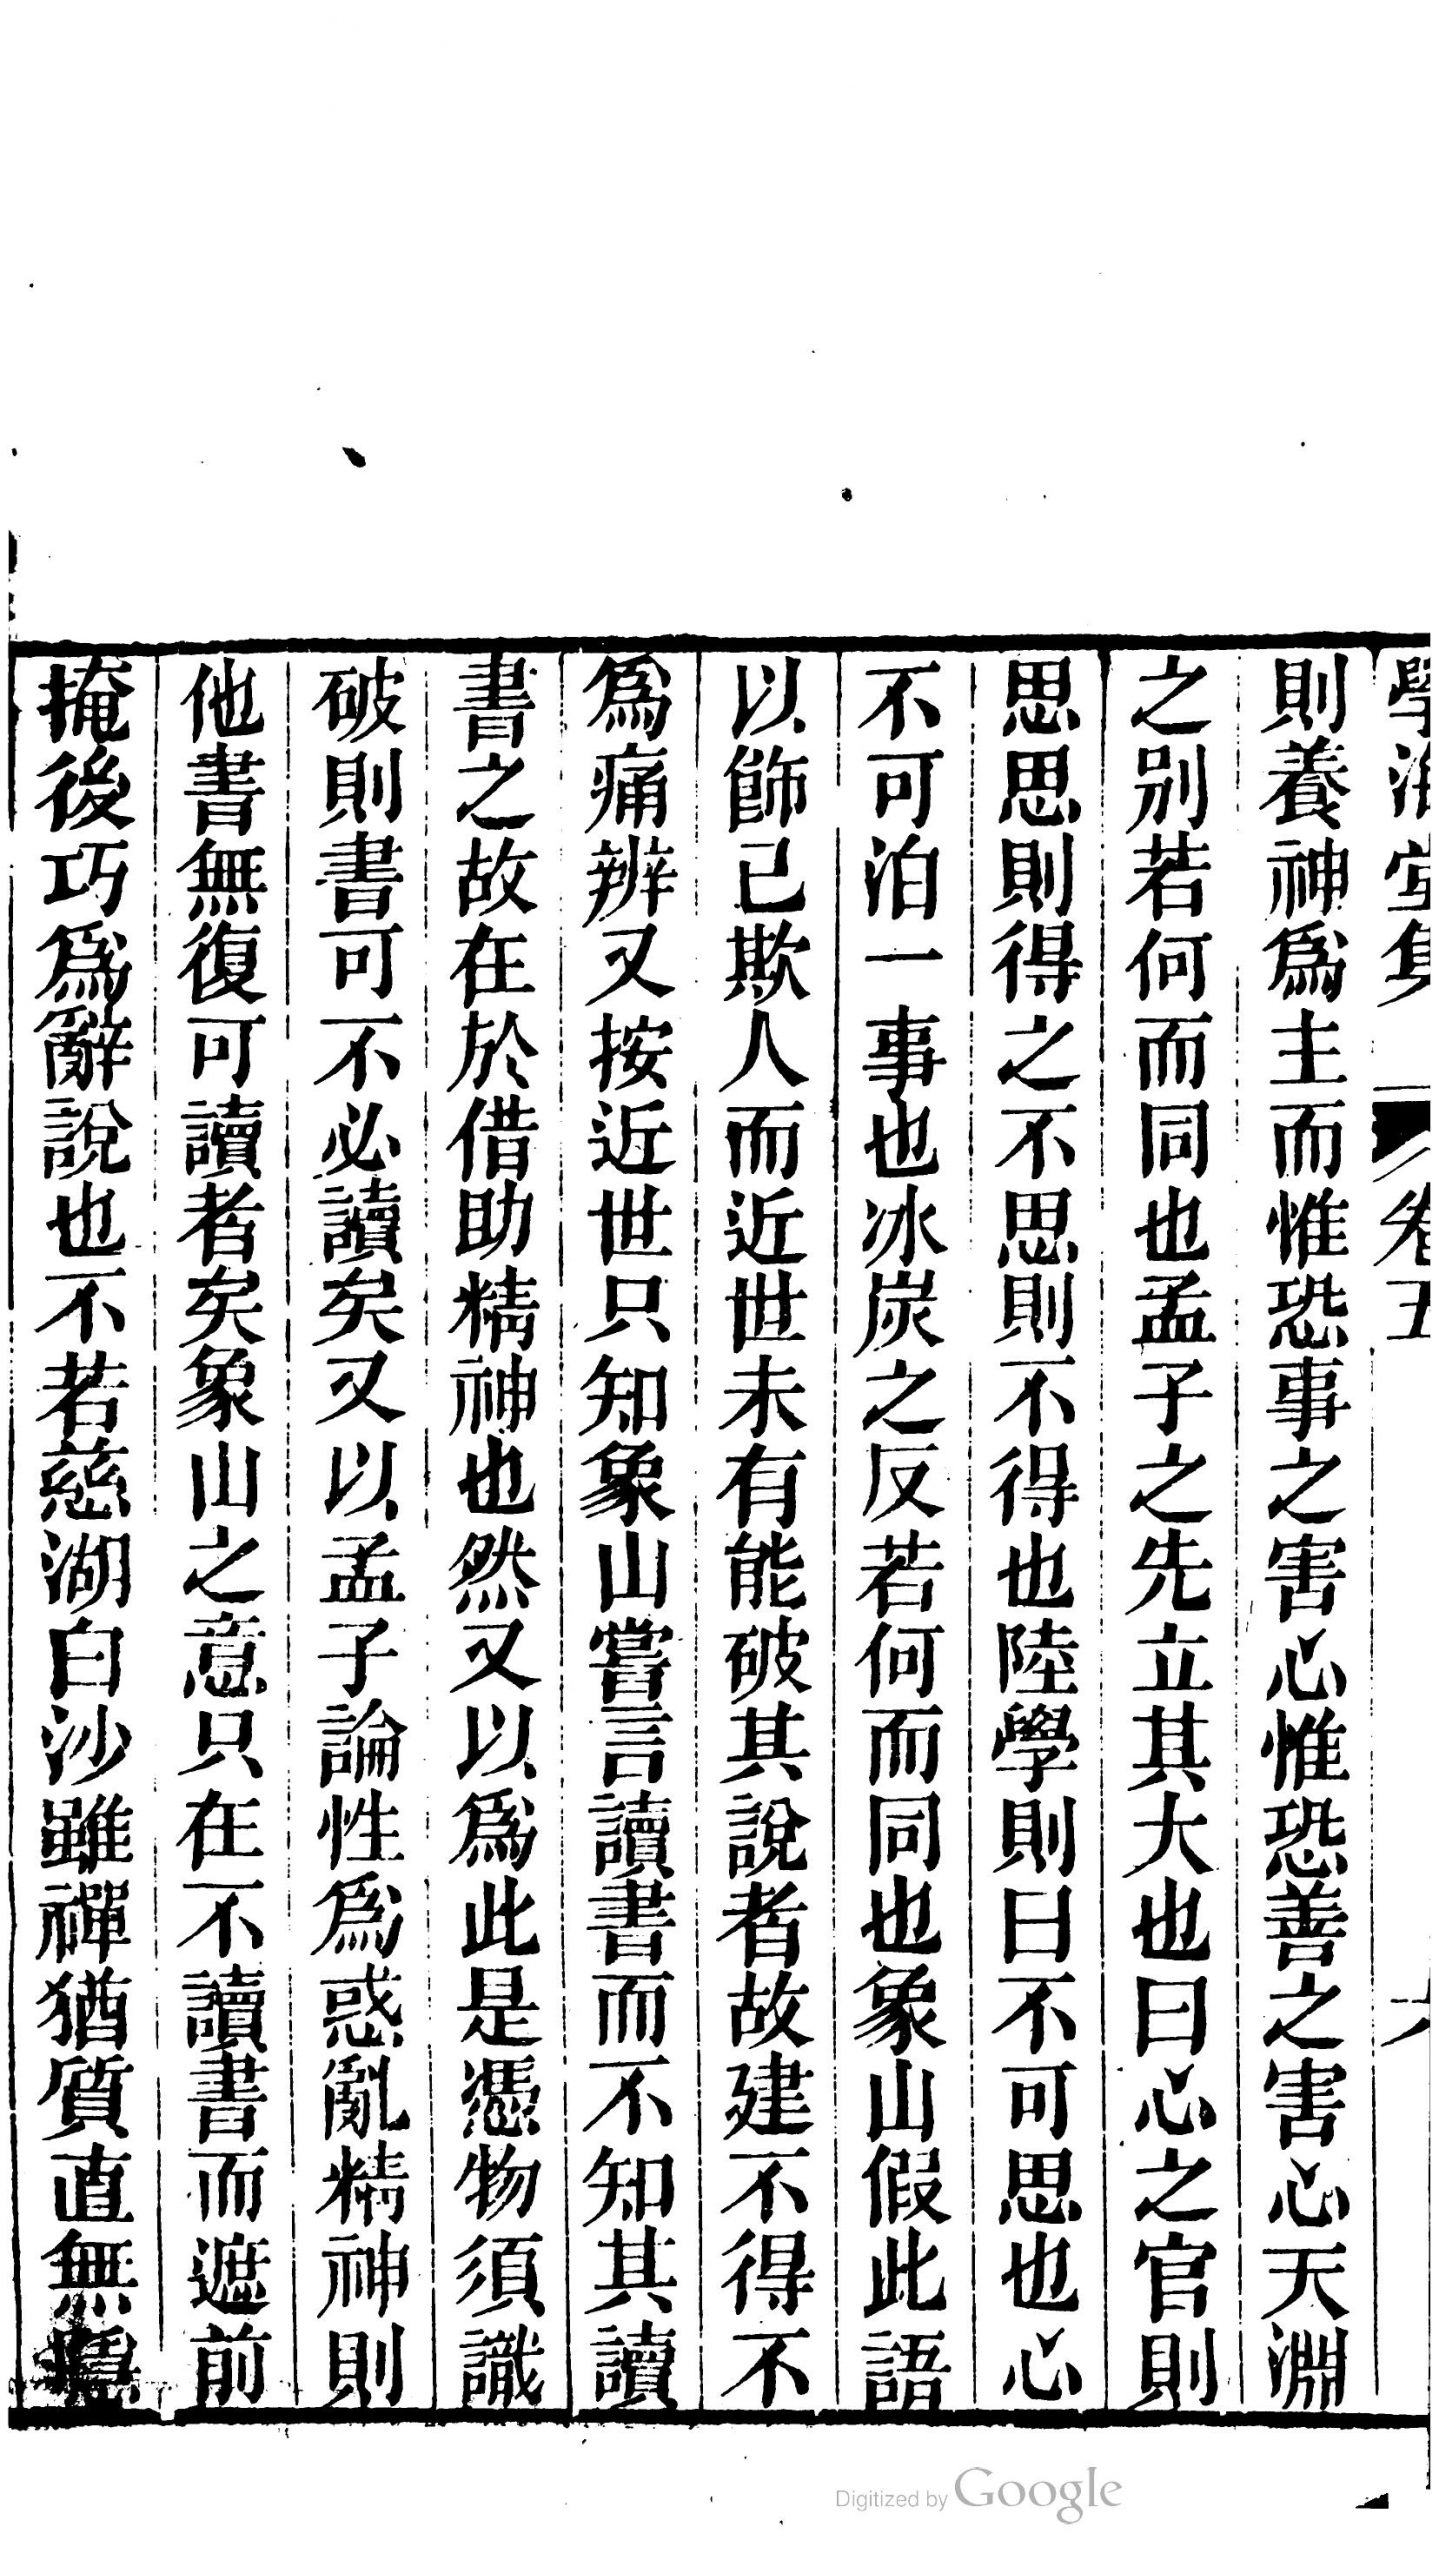 學海堂集 卷五 六
則養神爲主而惟恐事之害心惟恐善之害心天淵
之别若何而同也孟子之先立其大也曰心之官則
思思則得之不思則不得也陸學則曰不可思也心
不可泊一事也冰炭之反若何而同也象山假此語
以飾已欺人而近世未有能破其說者故建不得不
爲痛辨又按近世只知象山嘗言讀書而不知其讀
書之故在於借助精神也然又以爲此是憑物須識
破則書可不必讀矣又以孟子論性爲惑亂精神則
他書無復可讀者矣象山之意只在不讀書而遮前
掩後巧爲辭說也不若慈湖白沙雖禪猶質直無
Digitized by Google